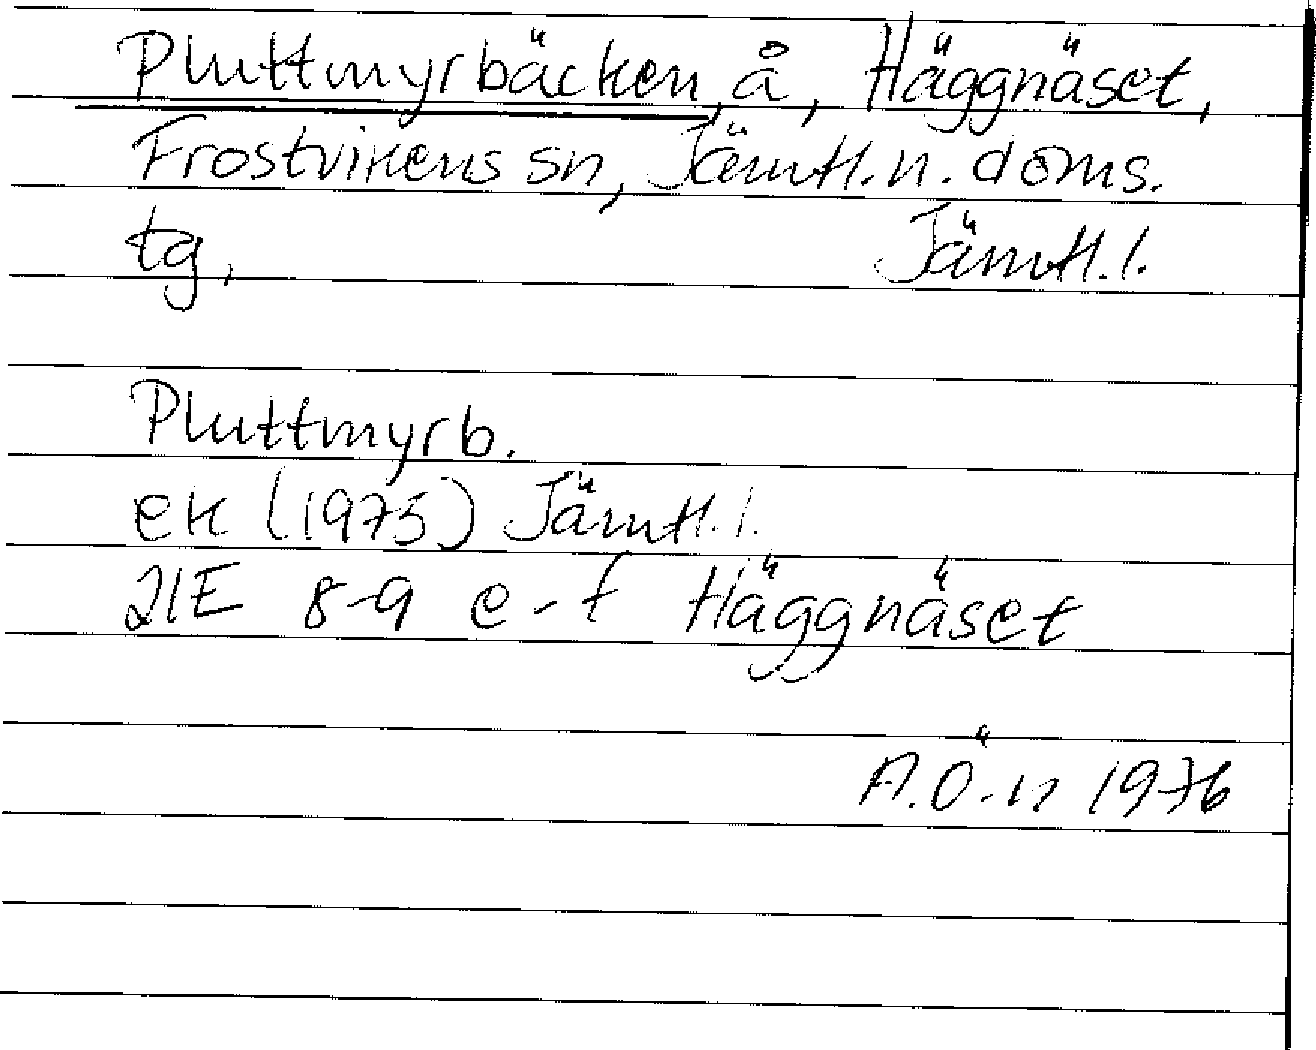 Pluttmyrbäcken, å, Häggnäset,
Frostvikens sn, Jämtl. n. doms.
tg, Jämtl. l.
Pluttmyrb.
ek (1975) Jämtl. l.
21E 8-9 e-f Häggnäset
A.Ö-n 1976